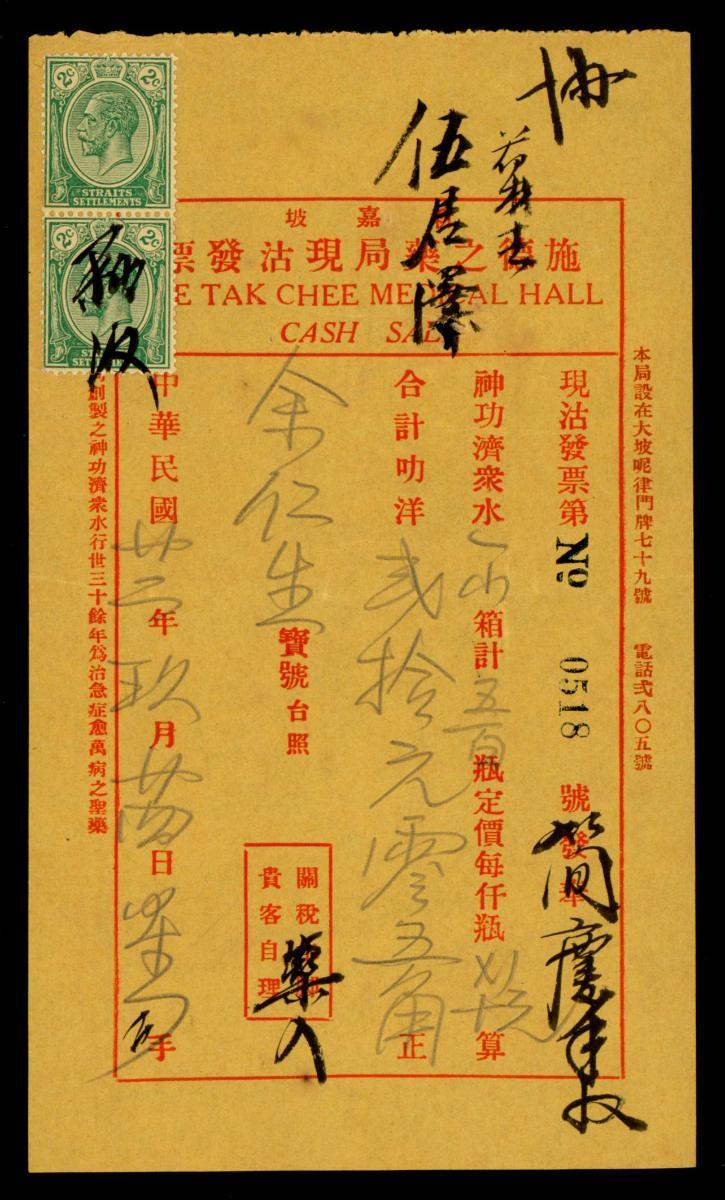 2c 2c
STRAITS
SETTLEMENTS
2c 2c
嘉坡
施德之藥局現沽發票
TAK CHEE MEDICAL HALL
CASH SALE
協
伍居澤
本局設在大坡呢律門牌七十九號 電話弍八〇五號
現沽發票第 No 0518 號發奉
簡慶
收
神功濟衆水 箱計五百瓶定價每仟瓶 算
合計叻洋弍拾元零五角正
余仁生寶號台照
關稅
貴客自理
藥
入
中華民國廿二年玖月 日 手
創製之神功濟衆水行世三十餘年爲治急症愈萬病之聖藥